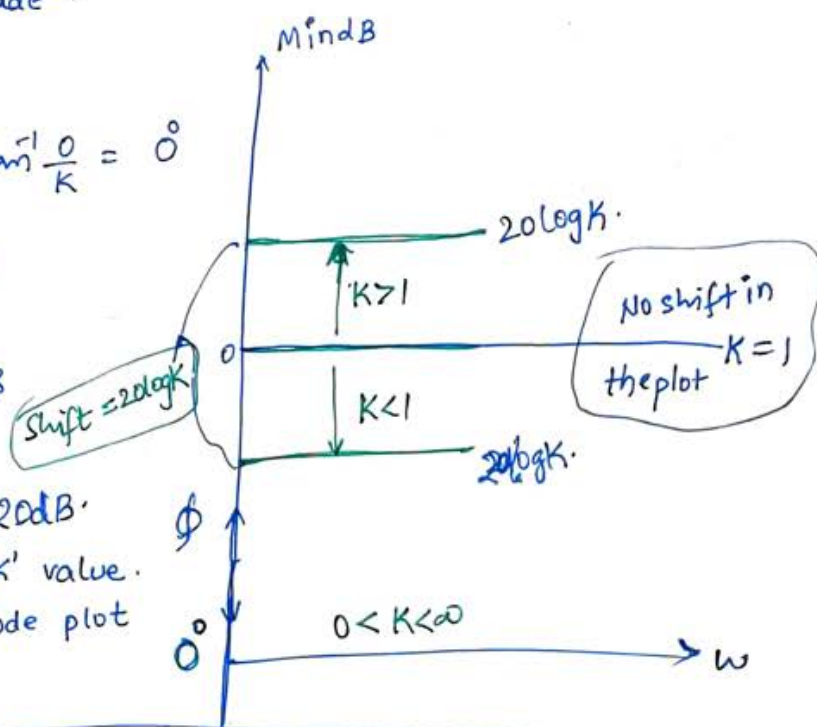 M in dB
tan⁻¹ 0/K = 0°
20 log K.
K>1
No shift in
the plot
K=1
0
Shift = 20logK
K<1
20logK.
20dB.
ϕ
K' value.
ode plot
0<K<∞
0°
ω